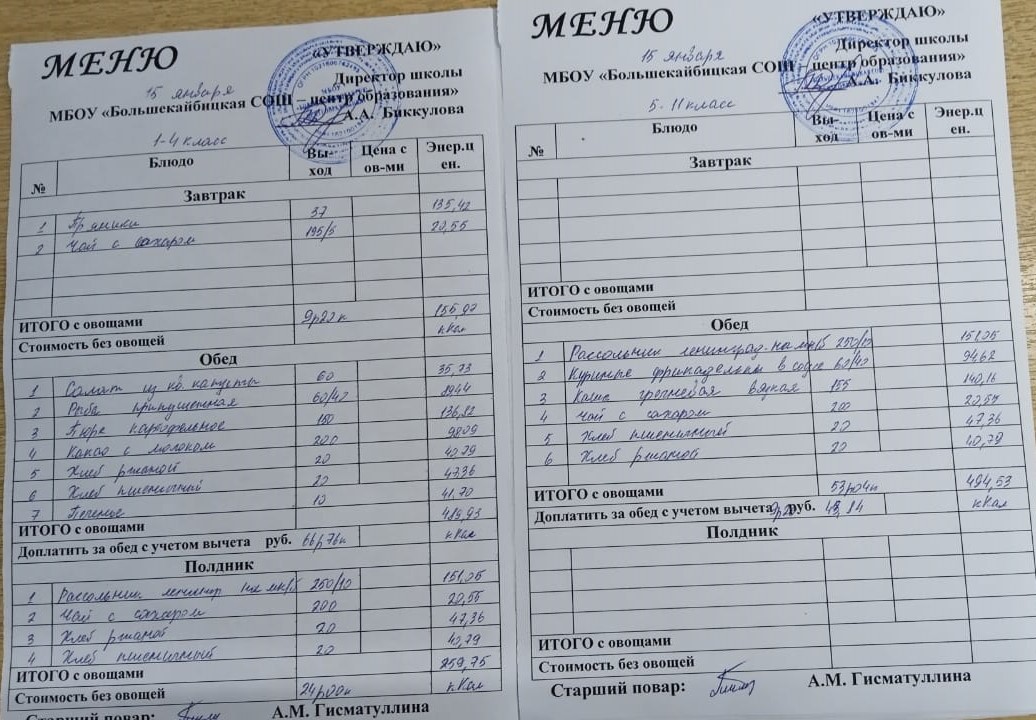 МЕНЮ
«УТВЕРЖДАЮ»
15 января
Директор школы
МБОУ «Большекайбицкая СОШ – центр образования»
А.А. Биккулова
1-4 класс
№ Блюдо Вы-ход Цена с ов-ми Энер.ц ен.
Завтрак
1 Пряники 37 135,42
2 Чай с сахаром 195/5 20,55
ИТОГО с овощами 9р20к 155,97
Стоимость без овощей кКал
Обед
1 Салат из кв. капусты 60 35,73
2 Рыба припущенная 60/40 89,44
3 Пюре картофельное 150 136,82
4 Какао с молоком 200 98,09
5 Хлеб ржаной 20 40,79
6 Хлеб пшеничный 20 47,36
7 Печенье 10 41,70
ИТОГО с овощами 489,93
Доплатить за обед с учетом вычета руб. 66р76к кКал
Полдник
1 Рассольник ленингр на мк/б 250/10 151,05
2 Чай с сахаром 200 20,55
3 Хлеб ржаной 20 47,36
4 Хлеб пшеничный 20 40,79
ИТОГО с овощами 259,75
Стоимость без овощей 24р00к кКал
Старший повар: А.М. Гисматуллина
МЕНЮ
«УТВЕРЖДАЮ»
15 января
Директор школы
МБОУ «Большекайбицкая СОШ – центр образования»
А.А. Биккулова
5-11 класс
№ Блюдо Вы-ход Цена с ов-ми Энер.ц ен.
Завтрак
ИТОГО с овощами
Стоимость без овощей
Обед
1 Рассольник ленинград. на мк/б 250/10 151,05
2 Куриные фрикадельки в соусе 60/40 94,62
3 Каша гречневая вязкая 155 140,16
4 Чай с сахаром 200 20,55
5 Хлеб пшеничный 20 47,36
6 Хлеб ржаной 20 40,79
ИТОГО с овощами 53р04к 494,53
Доплатить за обед с учетом вычета руб. кКал
Полдник
ИТОГО с овощами
Стоимость без овощей
Старший повар: А.М. Гисматуллина